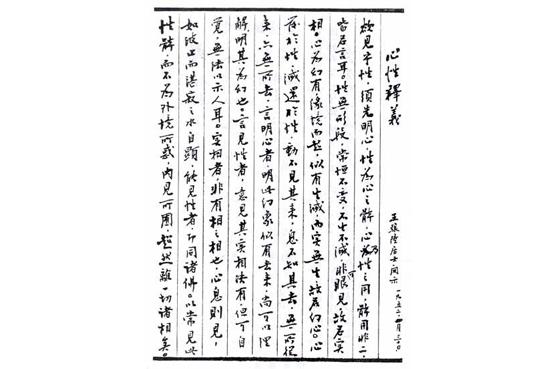 心性釋義
王驤陸居士開示 一九五六.四月.二〇
欲見本性，須先明心，性為心之體，心乃性之用，體用非二，
皆名言耳。性無形段，常恒不變，不生不滅，非眼可見，故名實
相。心為幻有，緣境而起，似有生滅，而實無生，故名幻心。心
於性，滅還於性，動不見其來，息不知其去，無所從
來，亦無所去，言明心者，明此幻象似有去來，尚可以理
解明其為幻也。言見性者，意見其實相法有，但可自
覺，無法以示人耳。實相者，非有相之相也，心息則見，
如波止而湛寂之水自顯，能見性者，即同諸佛。以常見此
性體，而不為外境所惑，內見所囿，超然離一切諸相矣。